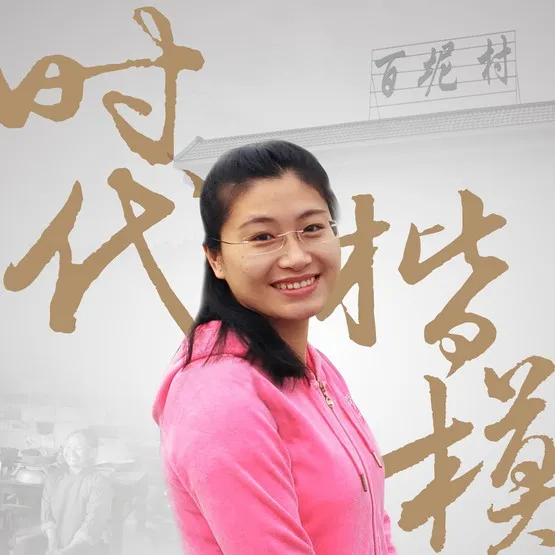 时代
楷模
百坭村